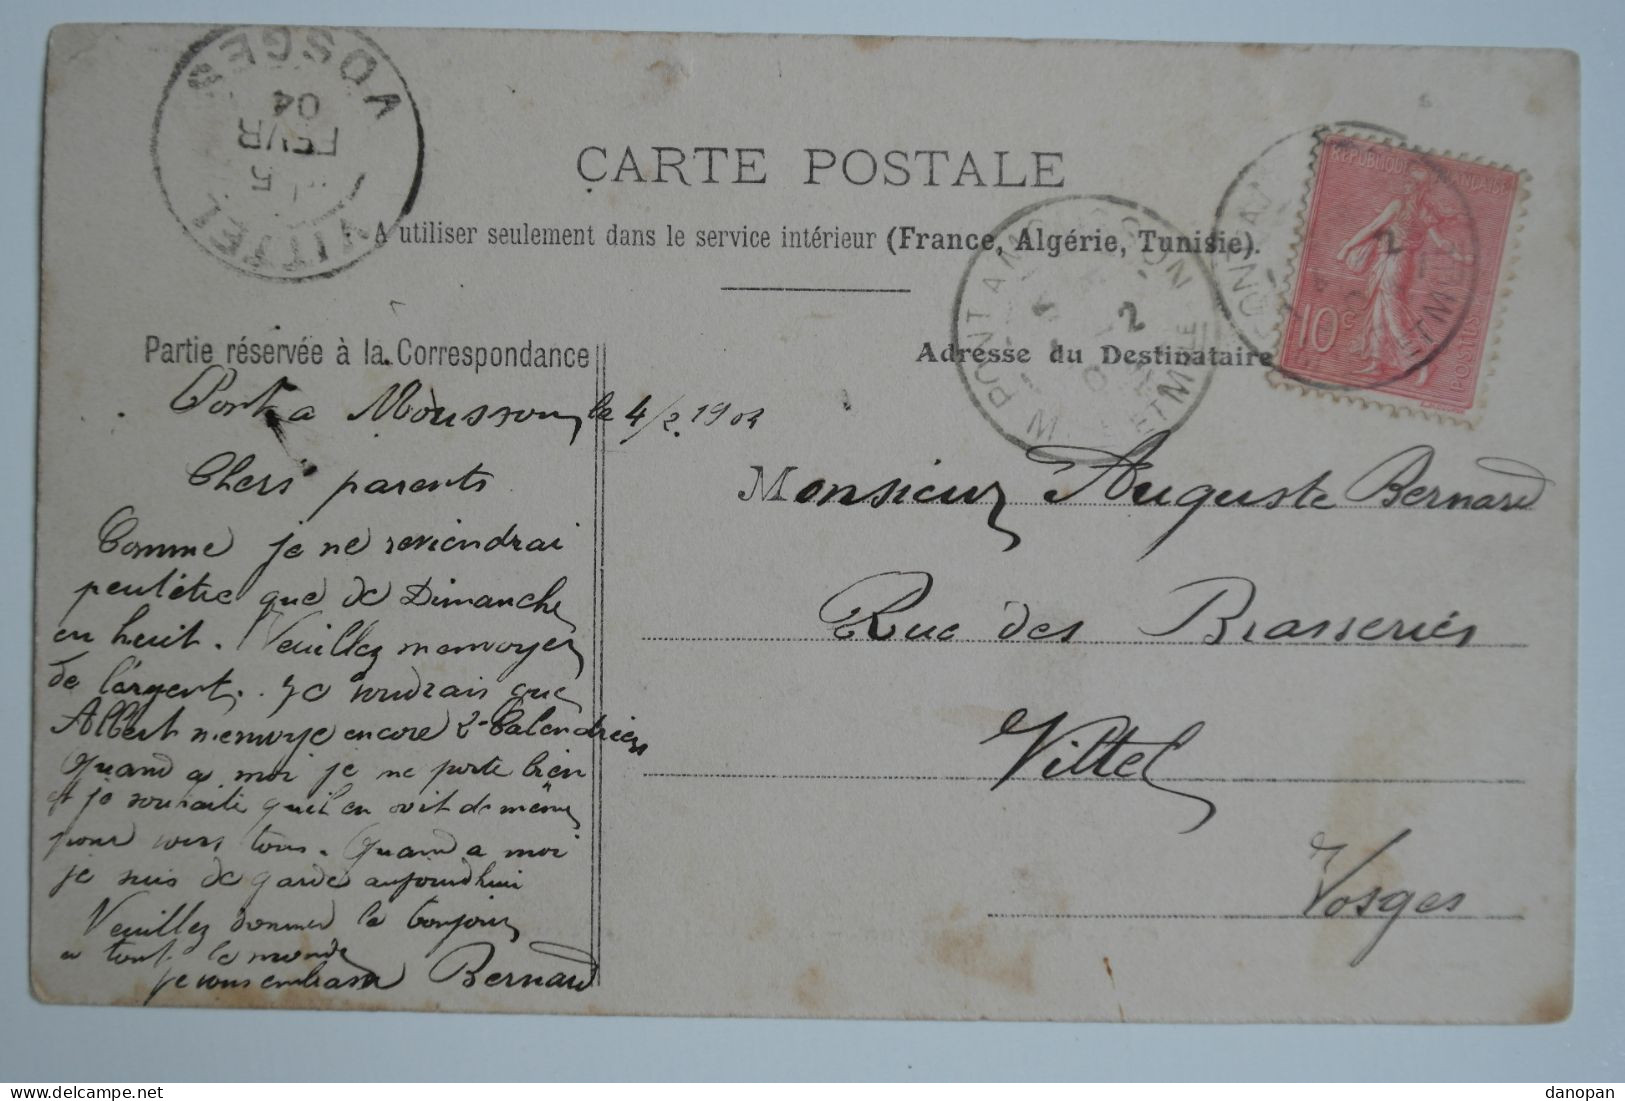 VITTEL
5
FEVR
04
VOSGES
CARTE POSTALE
A utiliser seulement dans le service intérieur (France, Algérie, Tunisie).
PONT A MOUSSON
2
MEURTHE ET MLLE
REPUBLIQUE FRANÇAISE
10c
POSTES
2
ET MLLE
Partie réservée à la Correspondance
Adresse du Destinataire
Pont a Mousson le 4/2. 1904
Chers parents
Comme je ne reviendrai
peutêtre que de Dimanche
en huit. Veuillez menvoyer
de l'argent. Je voudrais que
Albert menvoye encore 2 Calendriers
Quand a moi je ne porte bien
et je souhaite qu'il en soit de même
pour vous tous. Quand a moi
je suis de garde aujourdhui
Veuillez donner le bonjour
a tout le monde
je vous embrasse Bernard
Monsieur Auguste Bernard
Rue des Brasseries
Vittel
Vosges
delcampe.net
danopan